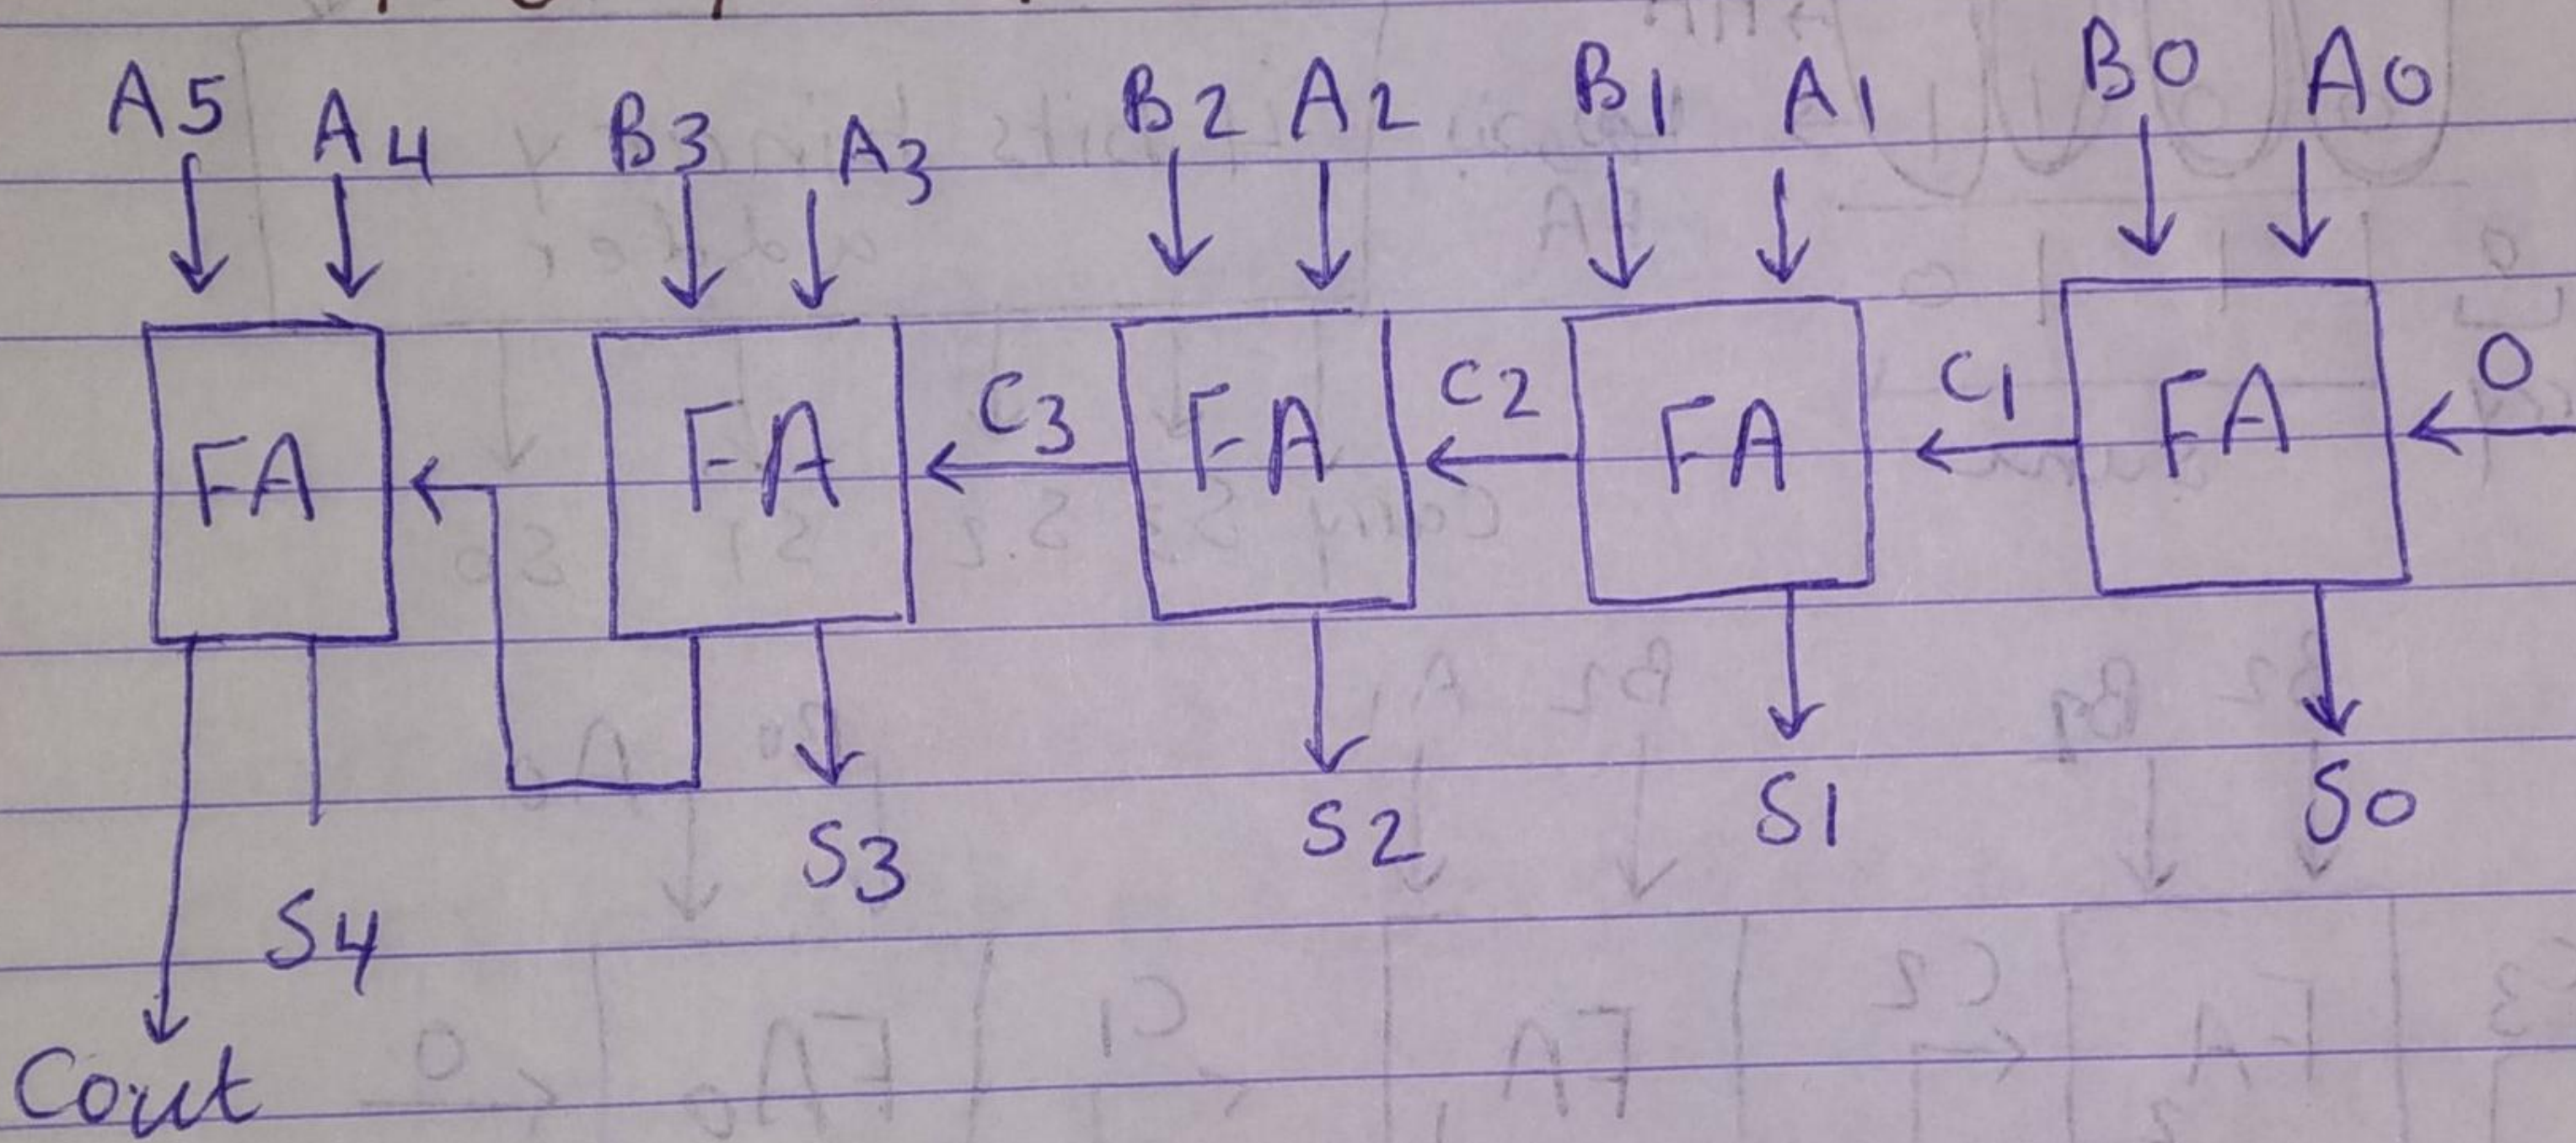 A5 A4 B3 A3 B2 A2 B1 A1 B0 A0
FA FA C3 FA C2 FA C1 FA 0
S4 S3 S2 S1 S0
Cout